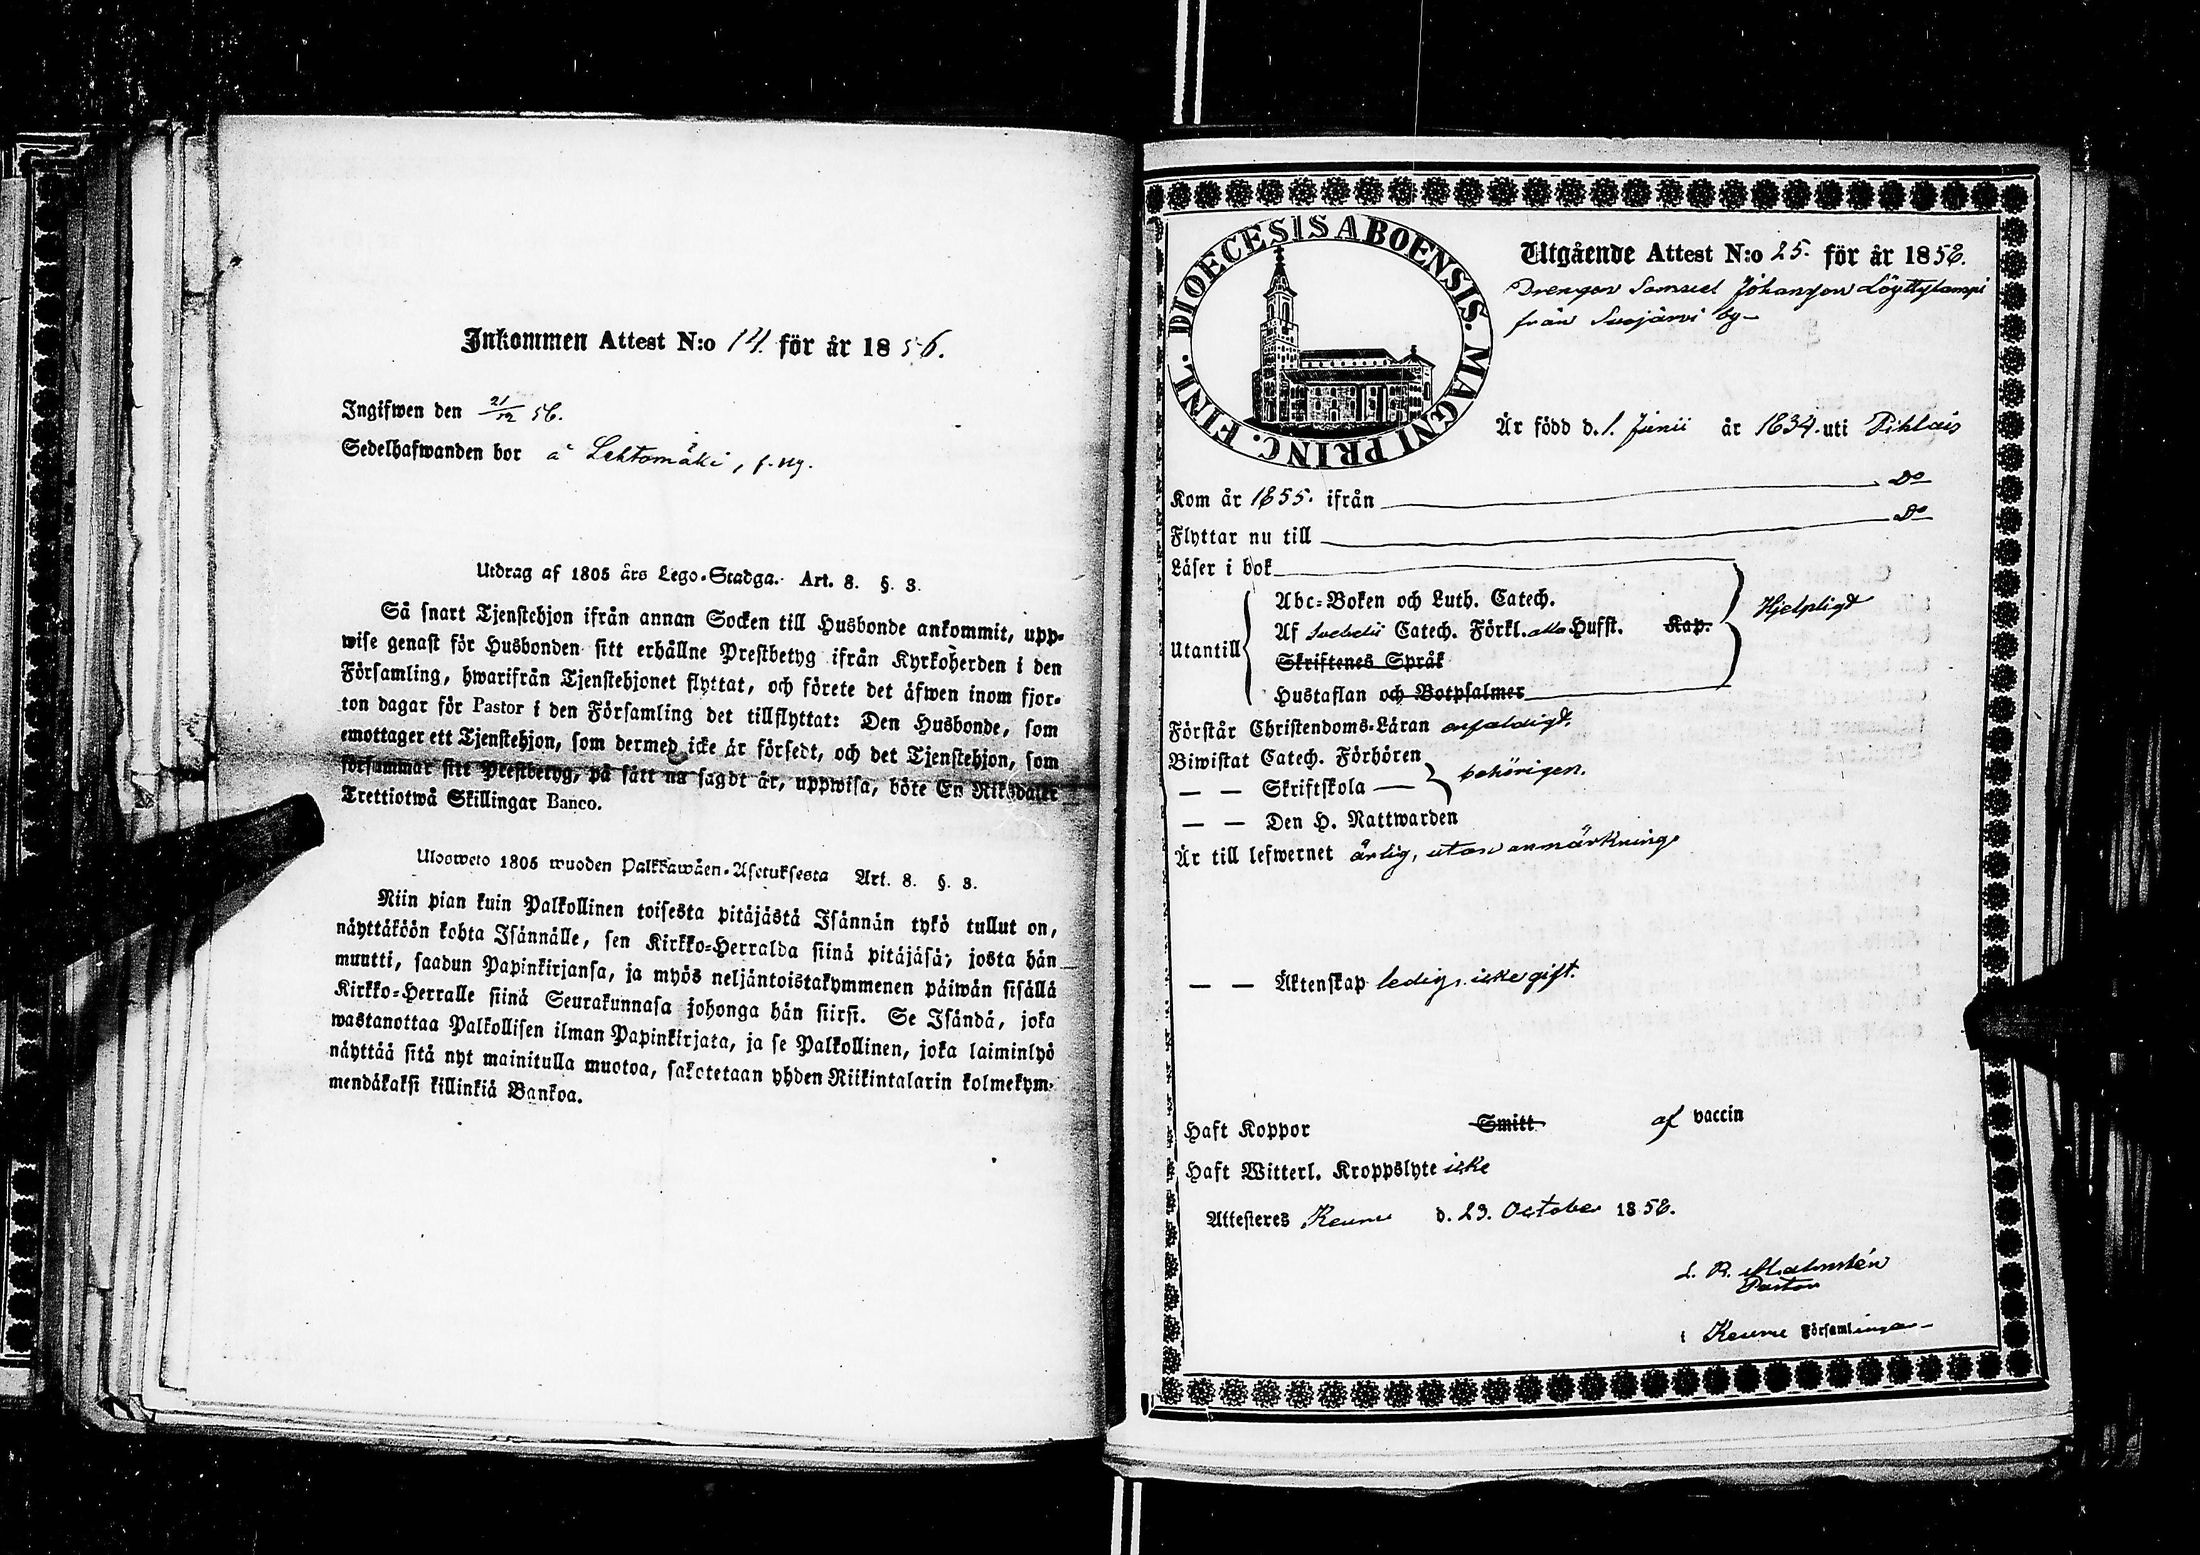 Inkommen Attest N:o 14. för år 1856.
Ingifwen den 21/12 56.
Sedelhafwanden bor å Lehtomäki, f. ny.
Utdrag af 1805 års Lego-Stadga. Art. 8. §. 3.
Så snart Tjenstehjon ifrån annan Socken till Husbonde ankommit, upp-
wise genast för Husbonden sitt erhållne Prestbetyg ifrån Kyrkoherden i den
Församling, hwarifrån Tjenstehjonet flyttat, och förete det äfwen inom fjor-
ton dagar för Pastor i den Församling det tillflyttat: Den Husbonde, som
emottager ett Tjenstehjon, som dermed icke är försedt, och det Tjenstehjon, som
försummar sitt Prestbetyg, på sätt nu sagdt är, uppwisa, böte En Riksdaler
Trettiotwå Skillingar Banco.
Ulosweto 1805 wuoden Palkkawäen-Asetuksesta Art. 8. §. 3.
Niin pian kuin Palkollinen toisesta pitäjästä Isännän tykö tullut on,
näyttäköön kohta Isännälle, sen Kirkko-Herralda siinä pitäjäsä, josta hän
muutti, saadun Papinkirjansa, ja myös neljäntoistakymmenen päiwän sisällä
Kirkko-Herralle siinä Seurakunnasa johonga hän siirsi. Se Isändä, joka
wastanottaa Palkollisen ilman Papinkirjata, ja se Palkollinen, joka laiminlyö
näyttää sitä nyt mainitulla muotoa, sakotetaan yhden Riikintalarin kolmekym-
mendäkaksi killinkiä Bankoa.
DIOECESIS ABOENSIS. MAGNI PRINC. FINL.
Utgående Attest N:o 25. för år 1856.
Drengen Samuel Johansson Löyttylampi
från Suojärvi by
Är född d. 1. Junii år 1834. uti Pihlais
Kom år 1855. ifrån Do
Flyttar nu till Do
Läser i bok
Abc-Boken och Luth. Catech.
Hjelpligt
Af Svebelii Catech. Förkl. Husst. Kap.
Utantill
Skriftenes Språk
Hustaflan och Botpsalmer
Förstår Christendoms-Läran enfaldigt.
Biwistat Catech. Förhören
behörigen.
— — Skriftskola
— — Den H. Nattwarden
Är till lefwernet ärlig, utan anmärkning.
— — Äktenskap ledig, icke gift.
Haft Koppor Smitt af vaccin
Haft Witterl. Kroppslyte icke
Attesteres Keuru d. 29. October 1856.
L. R. Malmstén
Pastor
i Keuru Församlingar